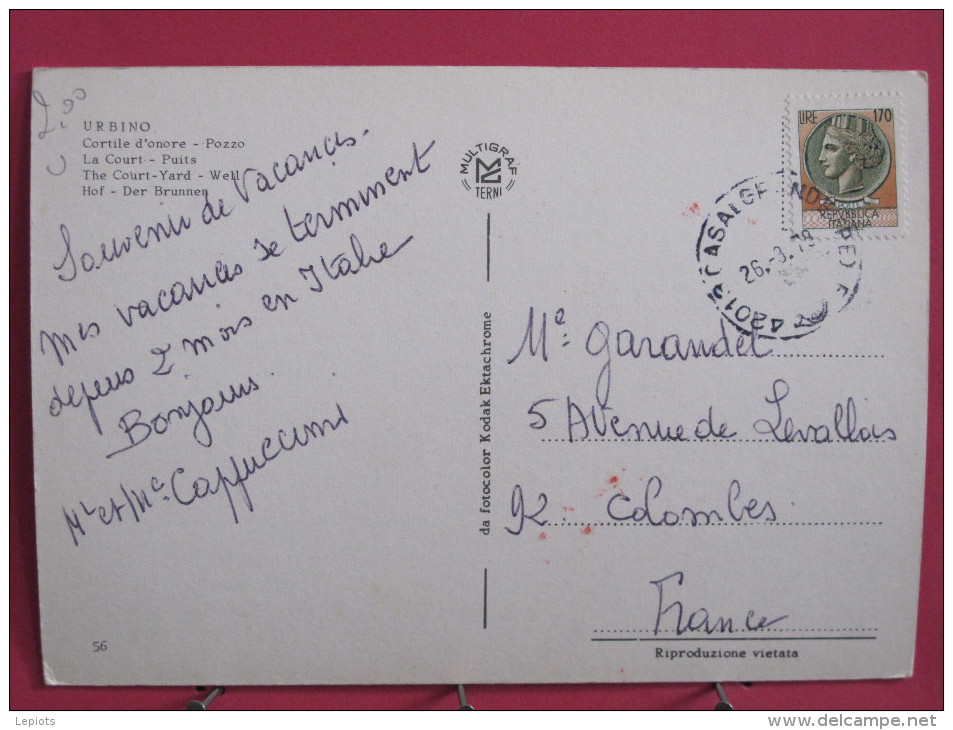 2,00
URBINO
Cortile d'onore - Pozzo
La Court - Puits
The Court-Yard - Well
Hof - Der Brunnen
Souvenir de Vacances.
Mes vacances se terminent
depuis 2 mois en Italie
Bonjours.
Mr et Me. Cappuccini
56
MULTIGRAF
TERNI
da fotocolor Kodak Ektachrome
LIRE 170
POSTE
REPVBBLICA
ITALIANA
42013 CASALGRANDE (RE)
26.-3.79
Me. Garandel
5 Avenue de Levallois
92. Colombes
France
Riproduzione vietata
Lepiots
www.delcampe.net